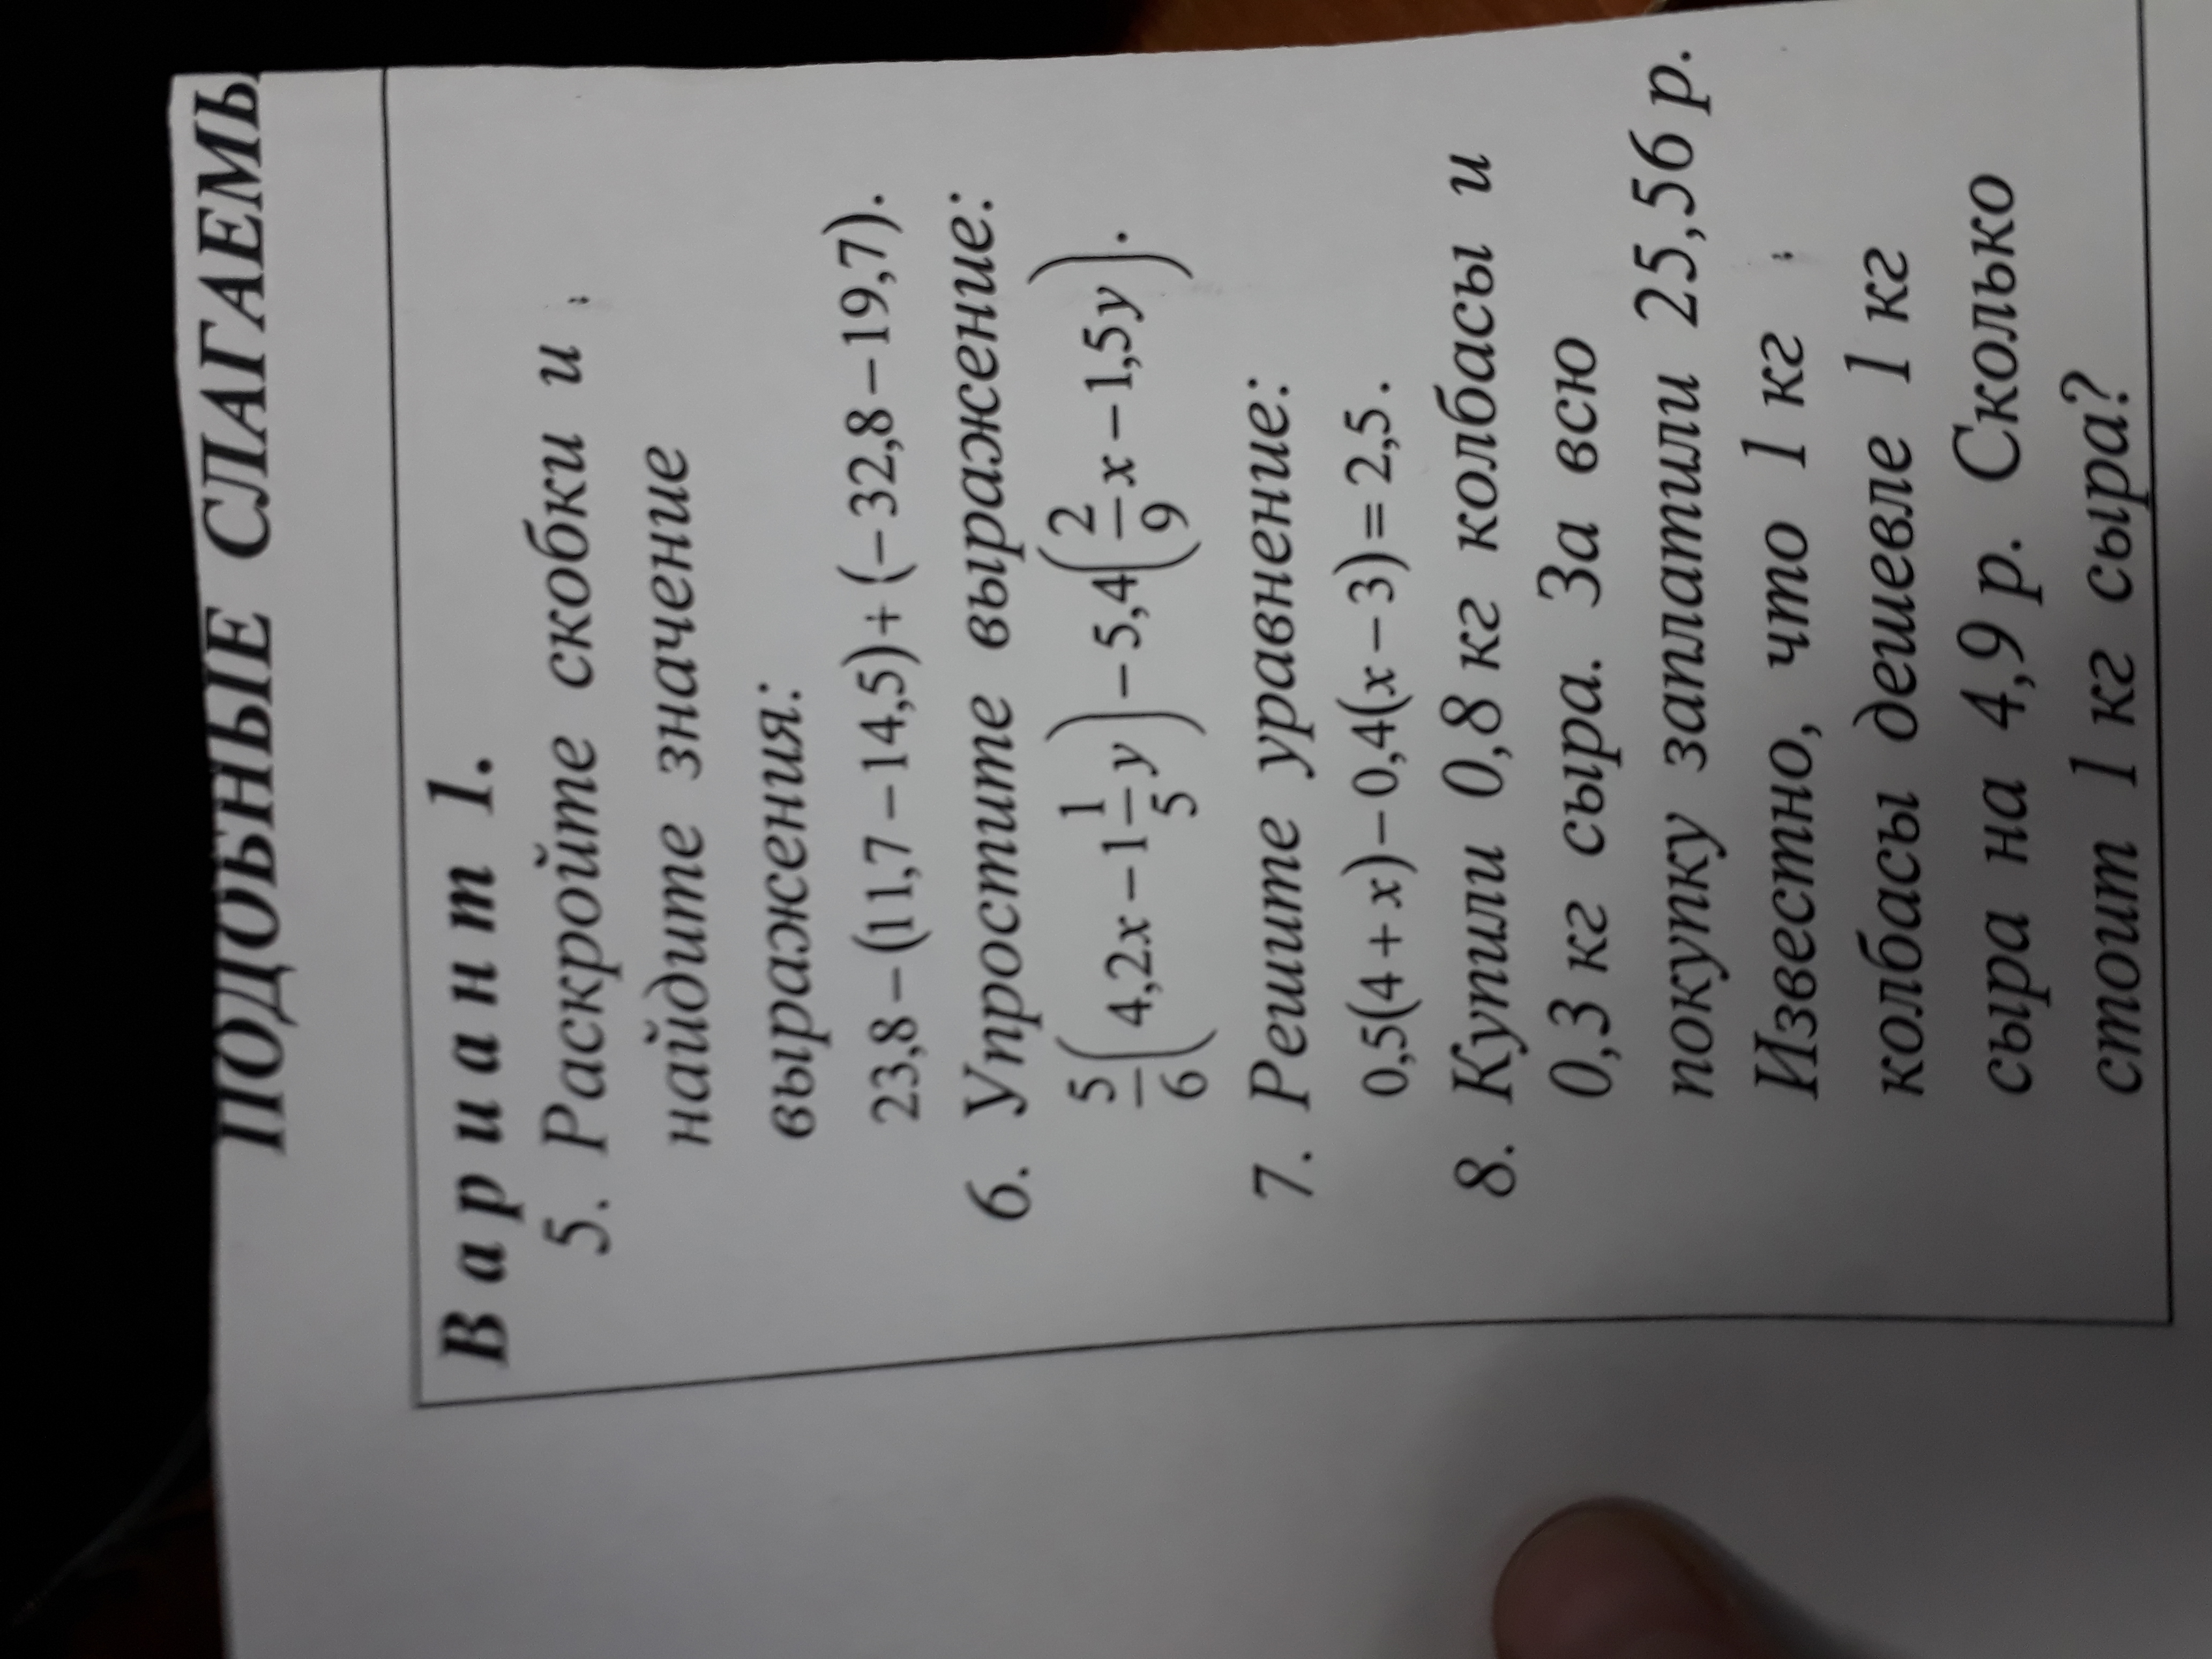 ПОДОБНЫЕ СЛАГАЕМЫ
Вариант 1.
5. Раскройте скобки и
найдите значение
выражения:
23,8−(11,7−14,5)+(−32,8−19,7).
6. Упростите выражение:
5/6(4,2x−1 1/5 y)−5,4(2/9 x−1,5y).
7. Решите уравнение:
0,5(4+x)−0,4(x−3)=2,5.
8. Купили 0,8 кг колбасы и
0,3 кг сыра. За всю
покупку заплатили 25,56 р.
Известно, что 1 кг
колбасы дешевле 1 кг
сыра на 4,9 р. Сколько
стоит 1 кг сыра?